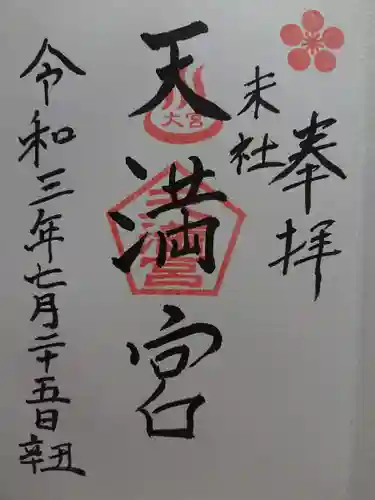 奉拝
末社
天満宮
大宮
天満宮
令和三年七月二十五日辛丑